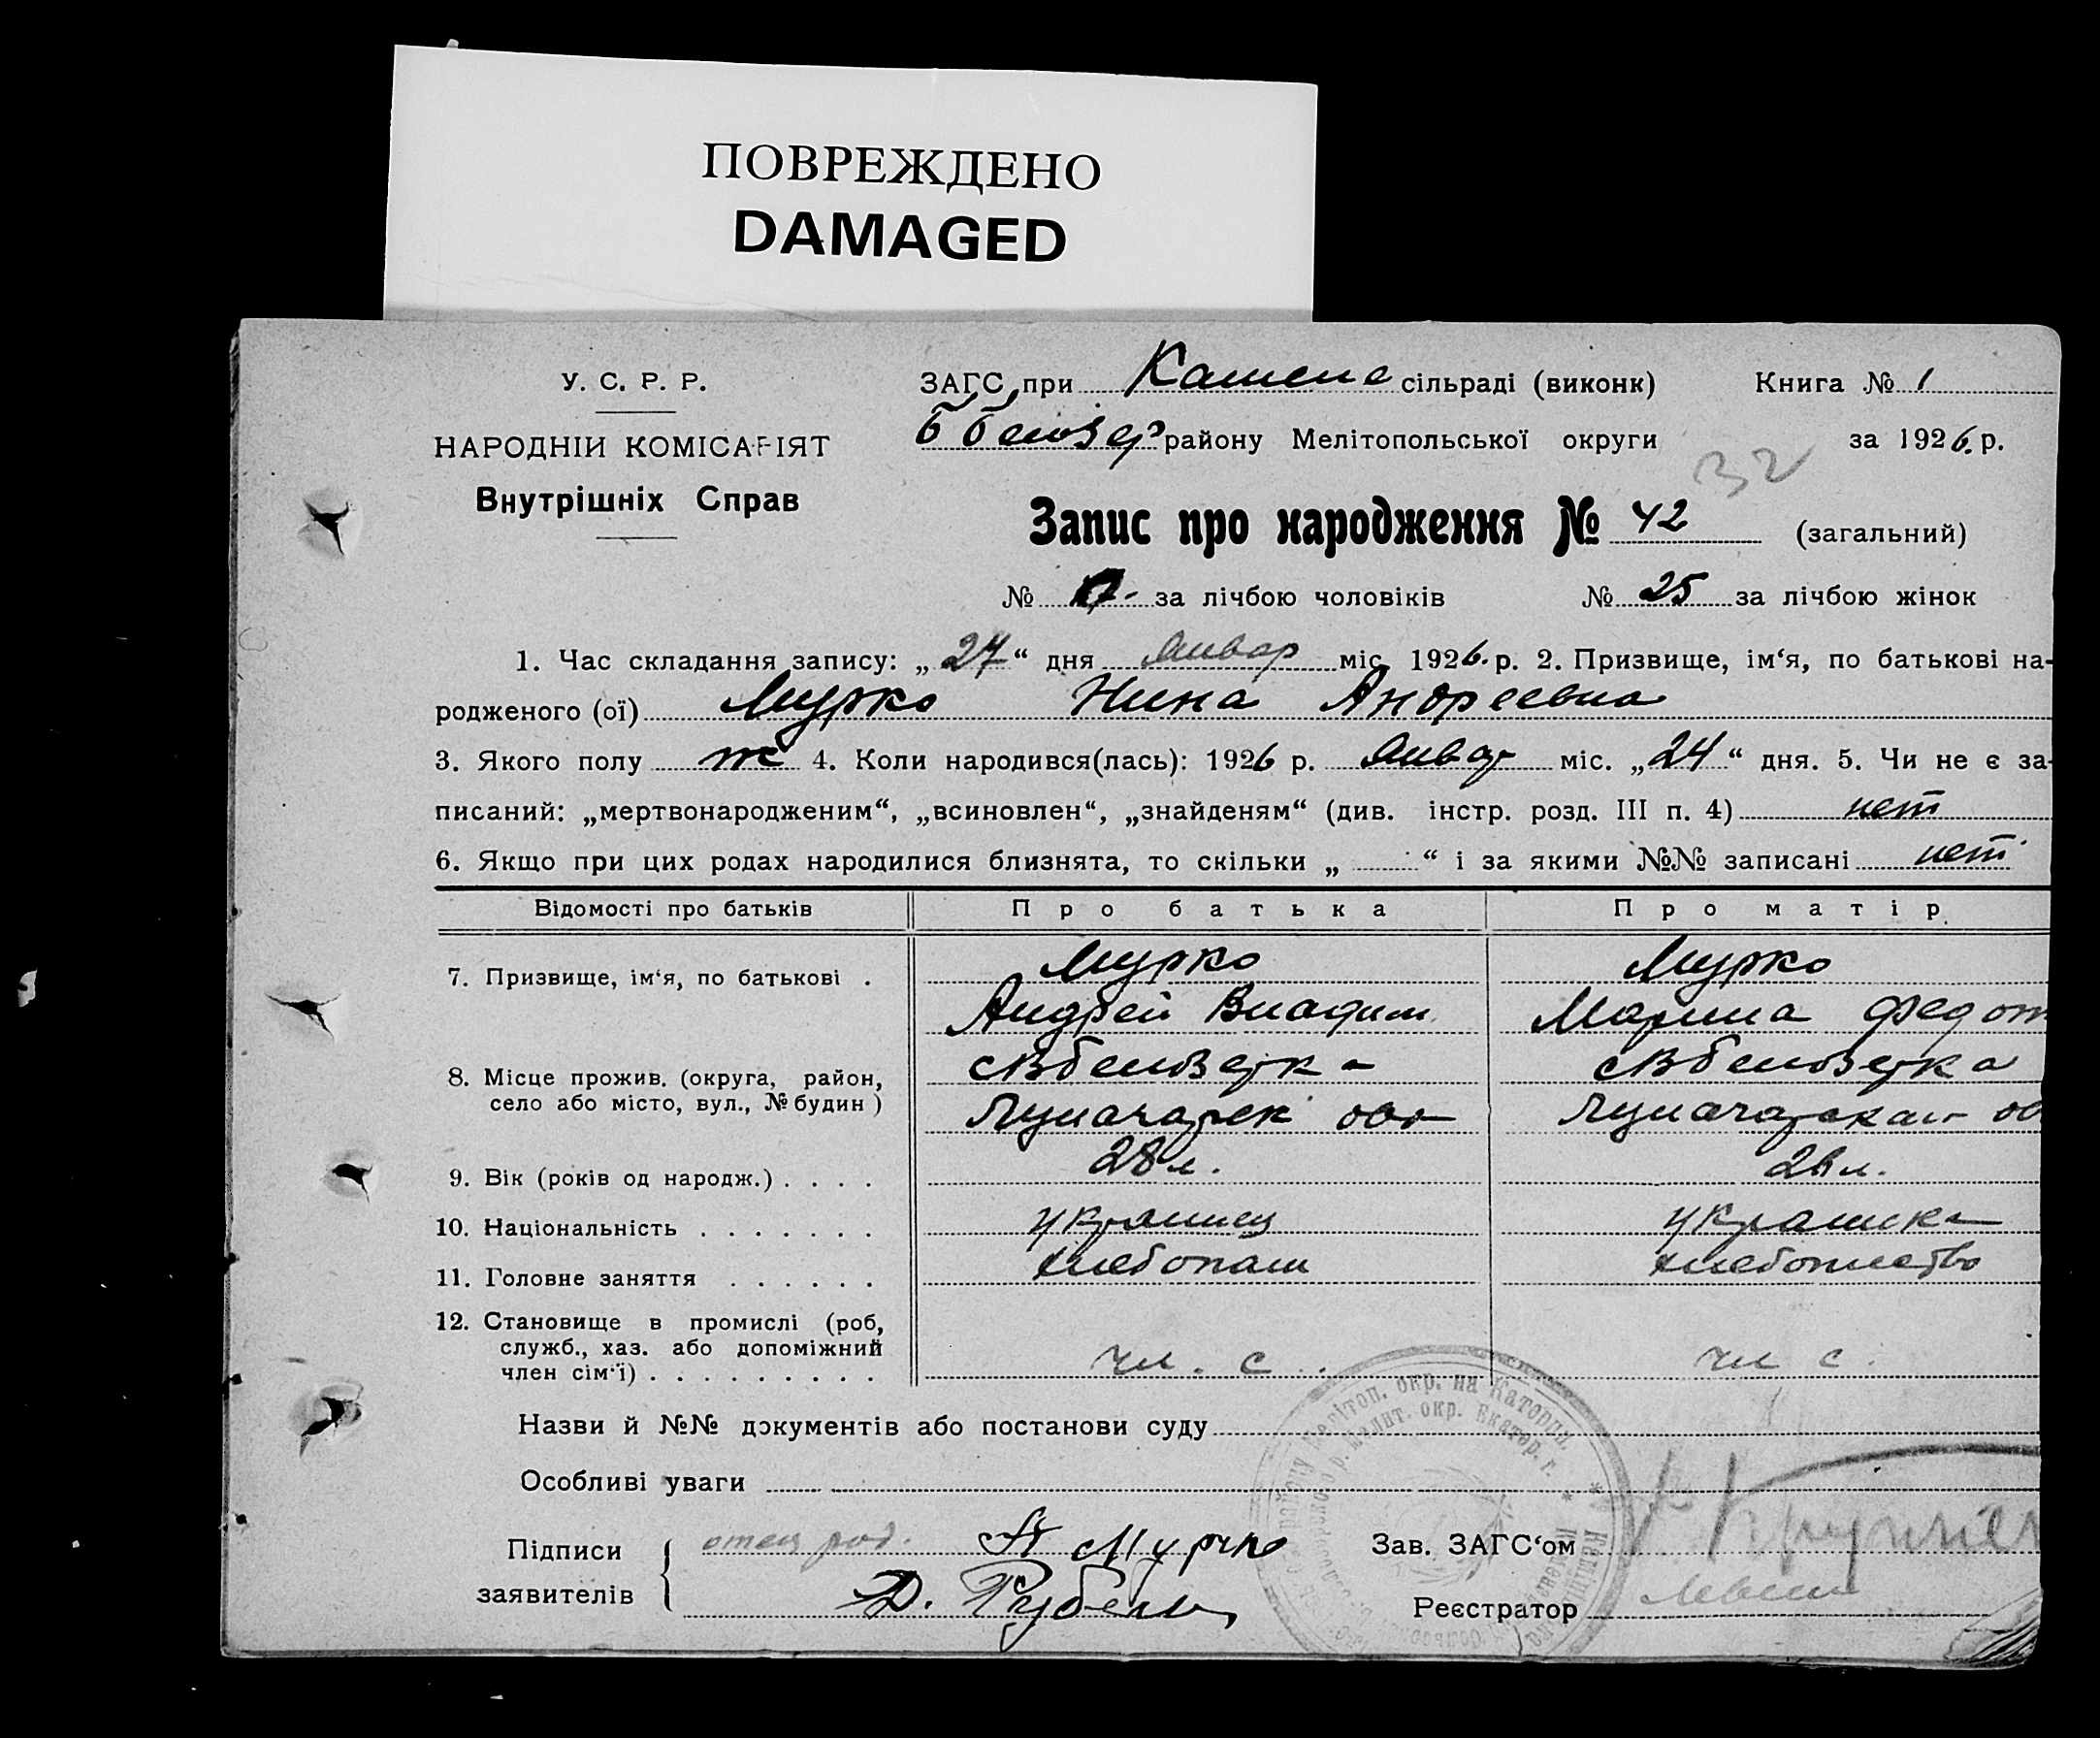 ПОВРЕЖДЕНО
DAMAGED
У. С. Р. Р.
НАРОДНІЙ КОМІСАРІЯТ
Внутрішніх Справ
ЗАГС при сільраді (виконк) Книга № 1
району Мелітопольської округи за 1926 р.
32
Запис про народження № 42 (загальний)
№ за лічбою чоловіків № 25 за лічбою жінок
1. Час складання запису: „27“ дня Январ міс. 1926 р. 2. Призвище, ім‘я, по батькові на-
родженого (ої) Мурко Нина Андреевна
3. Якого полу ж 4. Коли народився(лась): 1926 р. Январ міс. „24“ дня. 5. Чи не є за-
писаний: „мертвонародженим“, „всиновлен“, „знайденям“ (див. інстр. розд. III п. 4) нет
6. Якщо при цих родах народилися близнята, то скільки „ “ і за якими №№ записані нет
Відомості про батьків Про батька Про матір
7. Призвище, ім‘я, по батькові . Мурко Мурко
Андрей Владим Марина Федот
8. Місце прожив. (округа, район,
село або місто, вул., № будин)
9. Вік (років од народж.) . . . . 28 л. 26 л.
10. Національність . . . . . . . украинец украинка
11. Головне заняття . . . . . . хлебопаш
12. Становище в промислі (роб,
служб., хаз. або допоміжний
член сім‘ї) . . . . . . . . . чл. с. чл с.
Назви й №№ документів або постанови суду
Особливі уваги
Підписи
заявителів
отец А Мурко
Д. Рубель
Зав. ЗАГС‘ом
Реєстратор